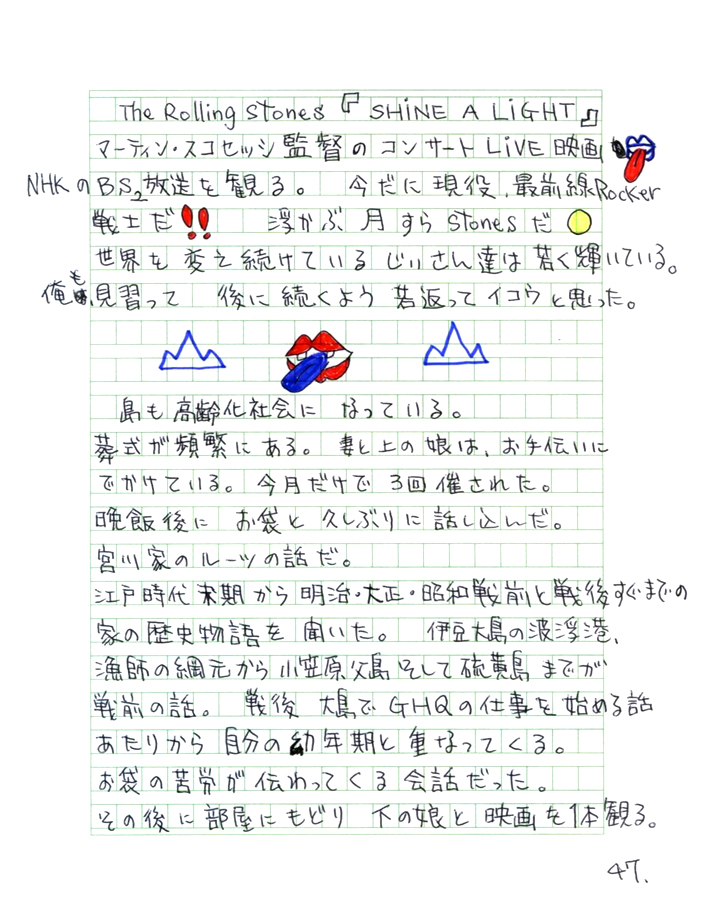 The Rolling Stones『SHINE A LIGHT』
マーティン・スコセッシ監督のコンサートLIVE映画
NHKのBS2放送を観る。 今だに現役、最前線Rocker
戦士だ!! 浮かぶ月すらStonesだ
世界を変え続けているじいさん達は若く輝いている。
俺も見習って 後に続くよう若返ってイコウと思った。
島も高齢化社会になっている。
葬式が頻繁にある。妻と上の娘は、お手伝いに
でかけている。今月だけで3回催された。
晩飯後に お袋と久しぶりに話し込んだ。
宮川家のルーツの話だ。
江戸時代末期から明治・大正・昭和戦前と戦後すぐまでの
家の歴史物語を聞いた。 伊豆大島の波浮港、
漁師の網元から小笠原父島そして硫黄島までが
戦前の話。 戦後 大島でGHQの仕事を始める話
あたりから自分の幼年期と重なってくる。
お袋の苦労が伝わってくる会話だった。
その後に部屋にもどり 下の娘と映画を1本観る。
47.